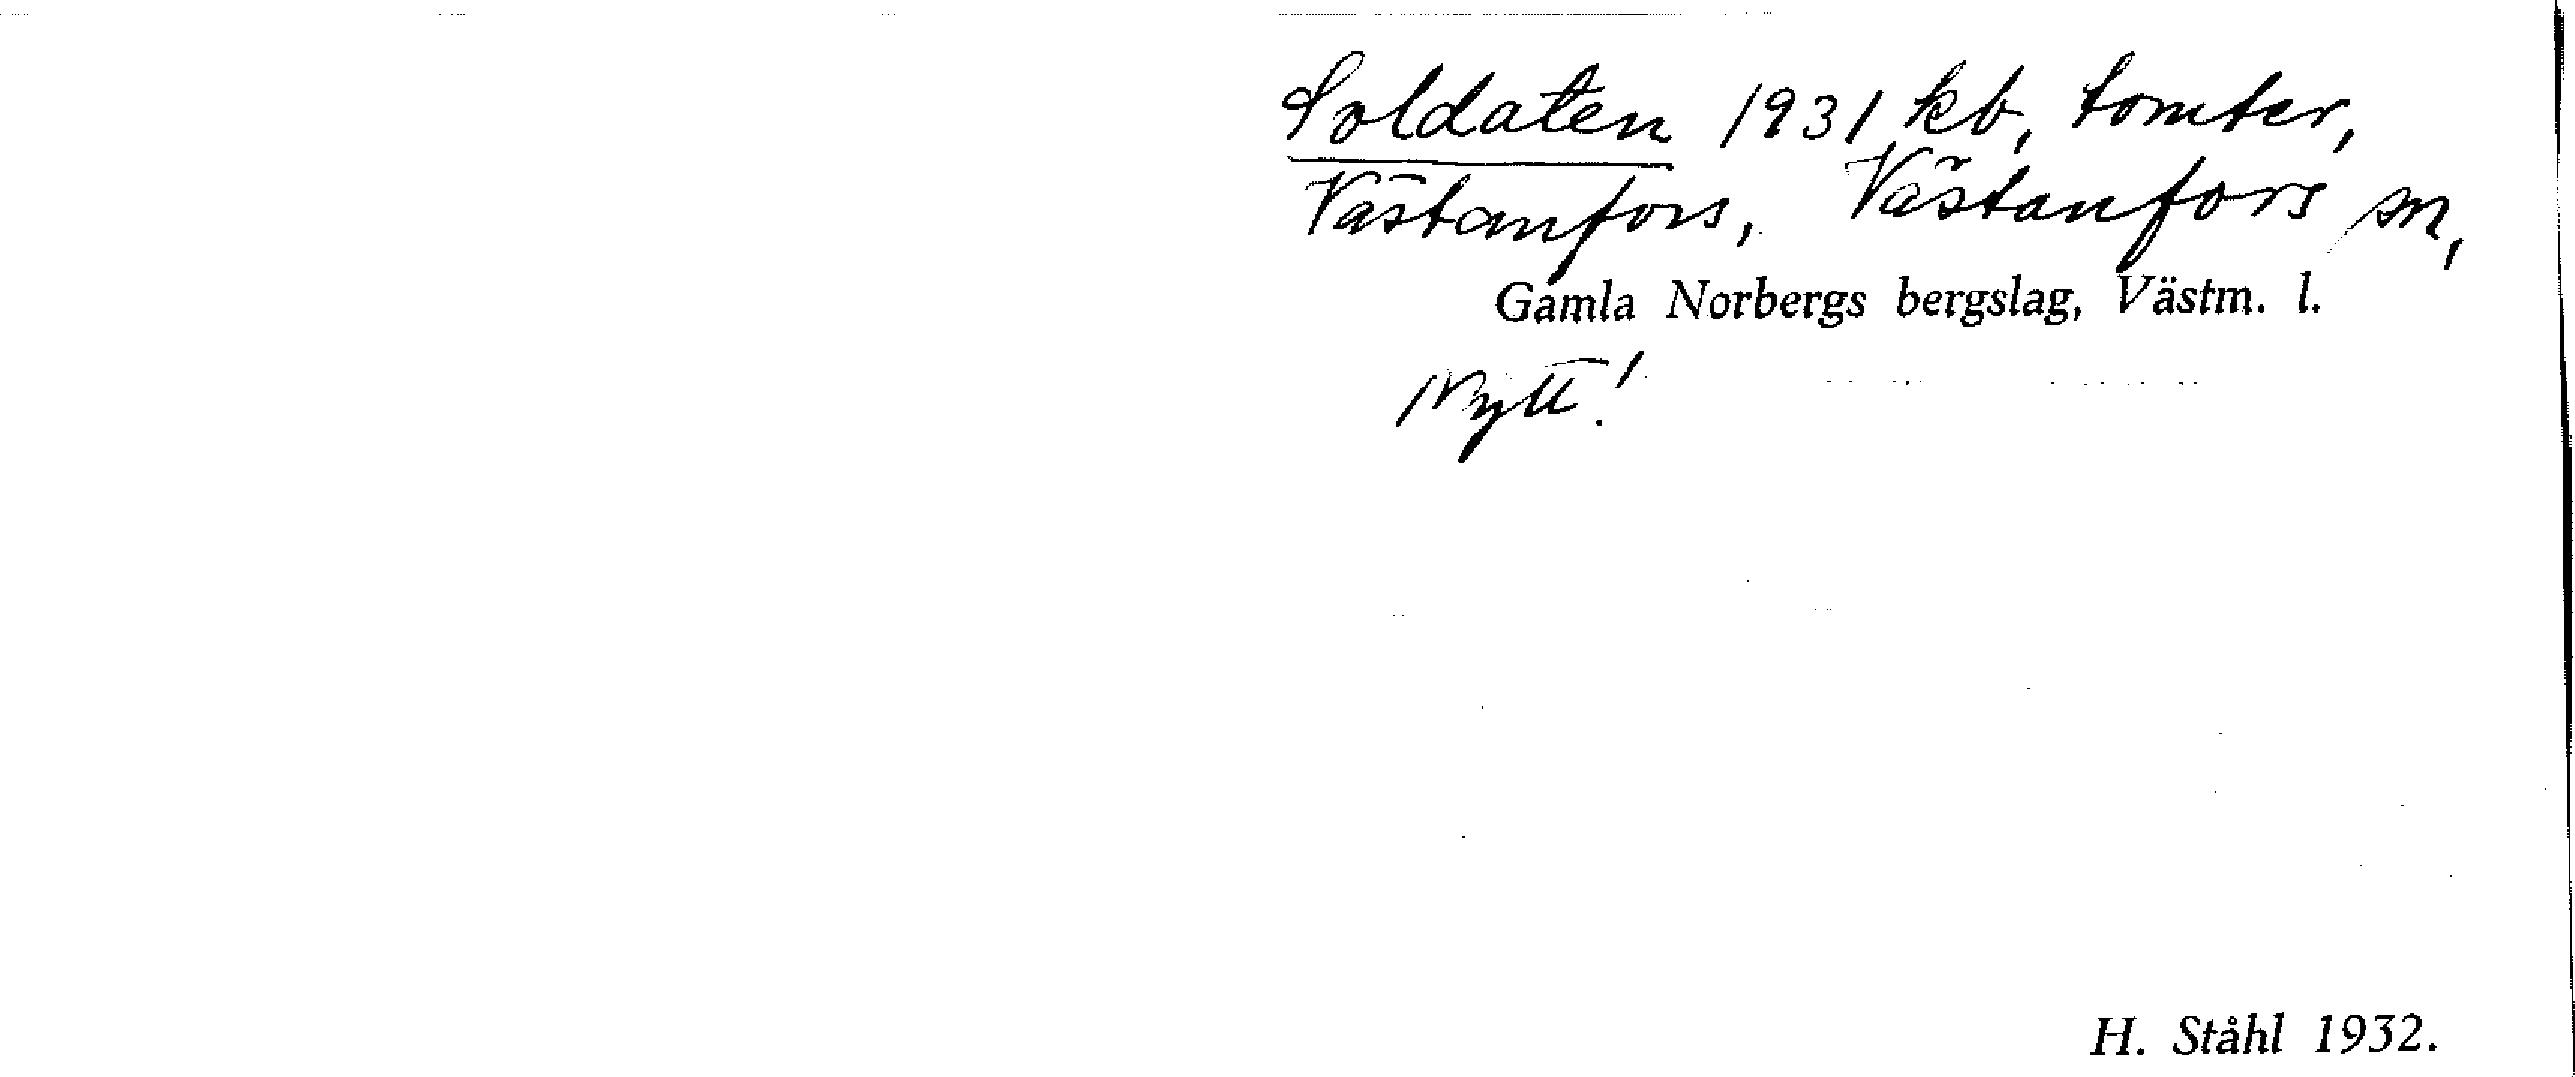 Soldaten 1931 kb, tomter,
Västanfors, Västanfors sn,
Gamla Norbergs bergslag, Västm. l.
Nytt!
H. Ståhl 1932.